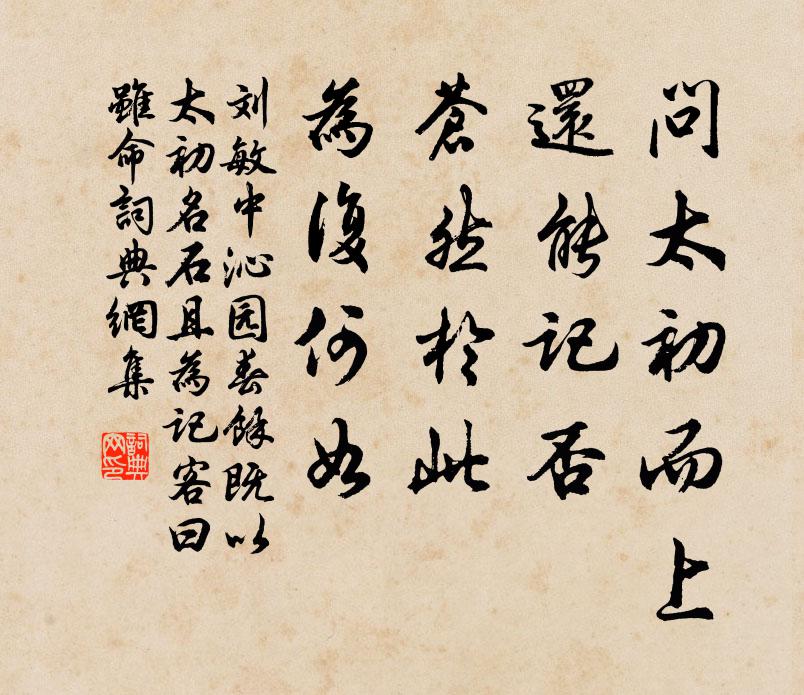 問太初而上
還能记否
蒼然於此
為復何如
刘敏中沁园春馀既以
太初名石且為记客曰
雖命詞典網集
詞典网印